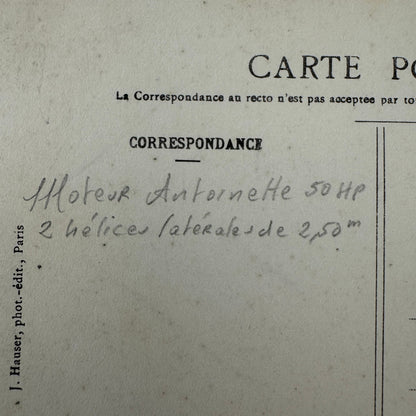 CARTE PO
La Correspondance au recto n'est pas acceptée par to
CORRESPONDANCE
Moteur Antoinette 50 HP
2 hélices latérales de 2,50 m
J. Hauser, phot.-édit., Paris